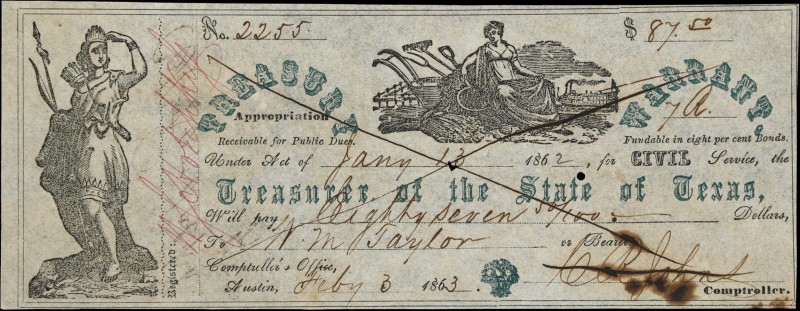 No. 2255.
$ 87.50
TREASURY WARRANT.
Appropriation
7 A.
Receivable for Public Dues.
Fundable in eight per cent Bonds.
Under Act of Jany 13 1862, for CIVIL Service, the
Treasurer of the State of Texas,
Will pay Eighty seven 50/100 Dollars,
To M Taylor or Bearer
Comptroller's Office,
Austin, Feby 3 1863.
C R Johns
Comptroller.
Registered: